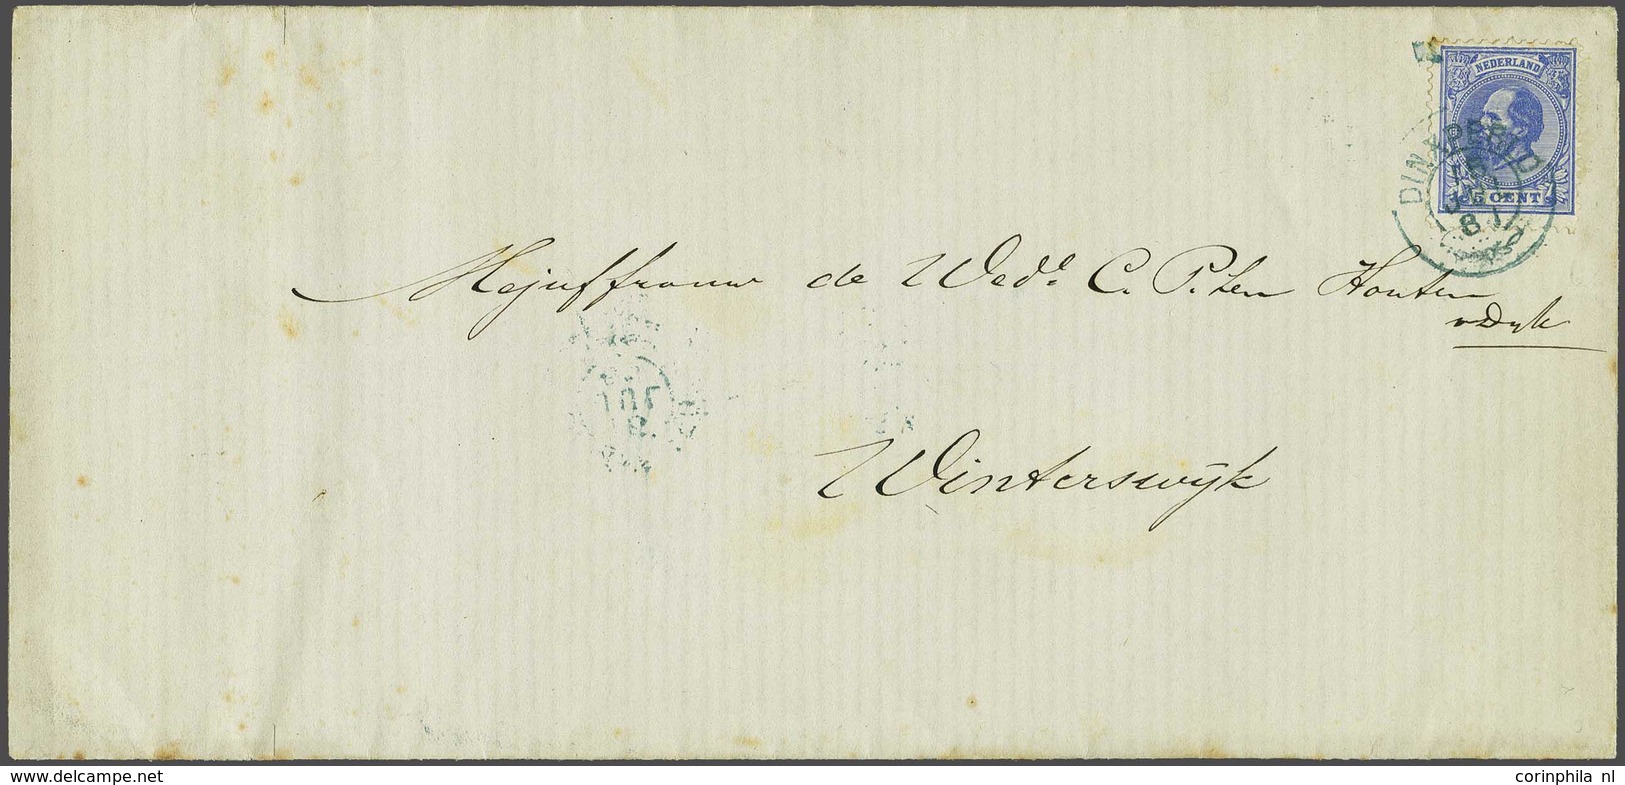 NEDERLAND
5 CENT
DINXPERLO
JUL
81
Mejuffrouw de Wed.e C. P. ten Houten
v Dyk
JUL
81
Winterswyk
www.delcampe.net
corinphila nl